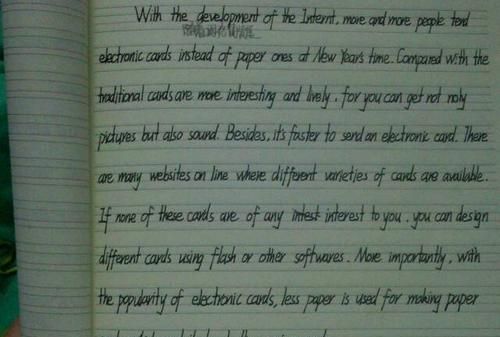 With the development of the Internt, more and more people tend
electronic cards instead of paper ones at New Year's time. Compared with the
traditional cards are more interesting and lively, for you can get not noly
pictures but also sound. Besides, it's faster to send an electronic card. There
are many websites on line where different varieties of cards are available.
If none of these cards are of any intest interest to you, you can design
different cards using flash or other softwares. More importantly, with
the popularity of electronic cards, less paper is used for making paper